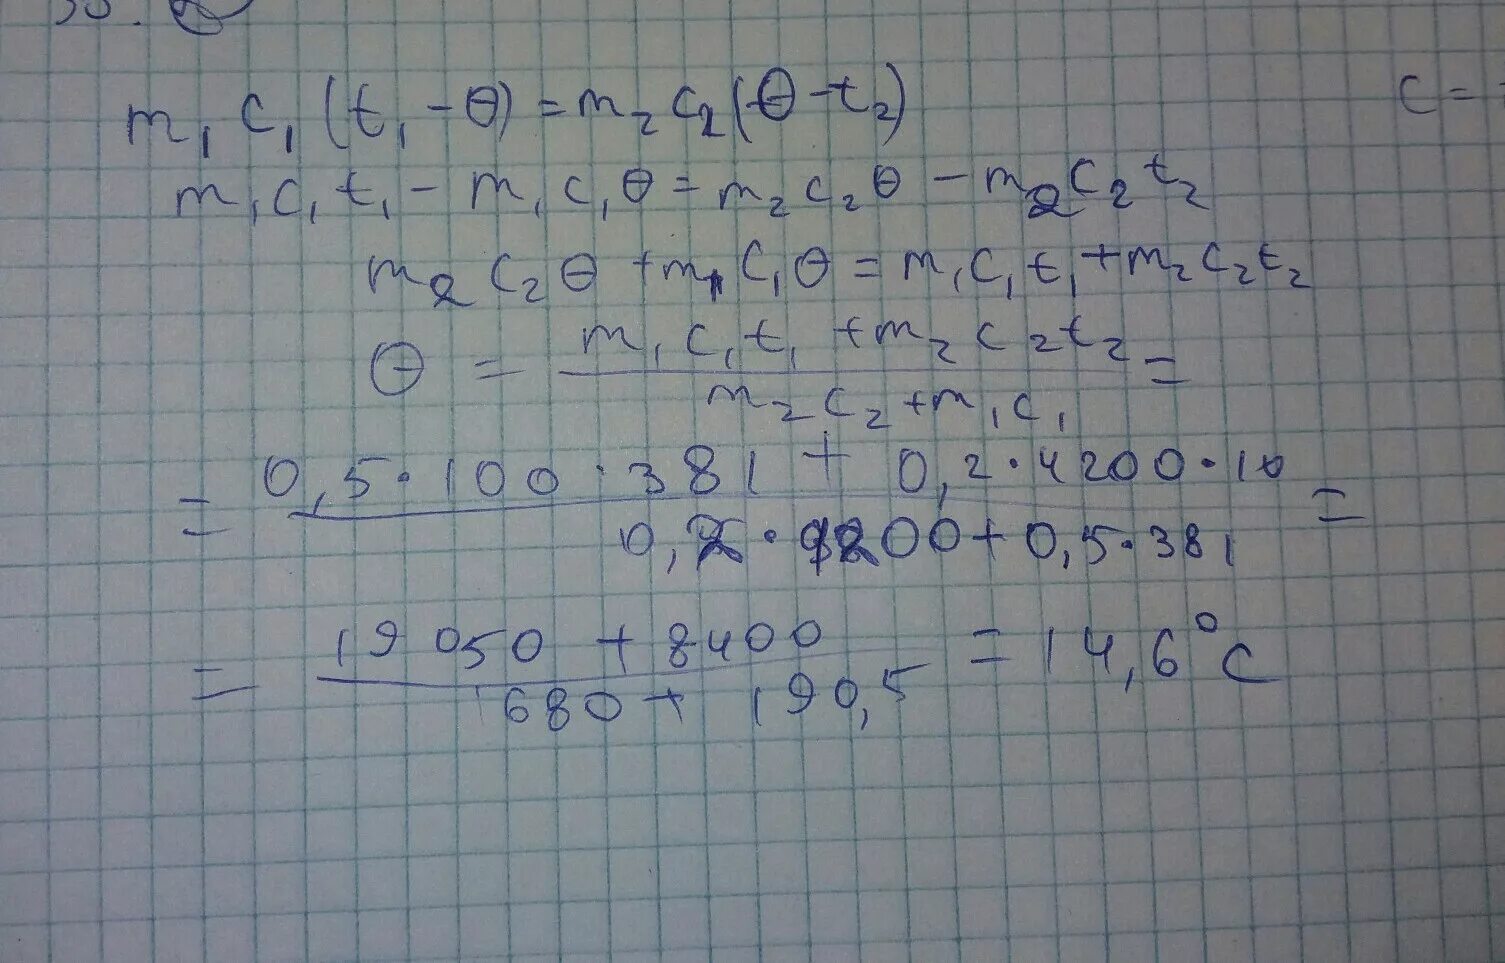 C =
m₁ c₁ (t₁ - θ) = m₂ c₂ (θ - t₂)
m₁ c₁ t₁ - m₁ c₁ θ = m₂ c₂ θ - m₂ c₂ t₂
m₂ c₂ θ + m₁ c₁ θ = m₁ c₁ t₁ + m₂ c₂ t₂
θ = (m₁ c₁ t₁ + m₂ c₂ t₂) / (m₂ c₂ + m₁ c₁) =
= (0,5 · 100 · 381 + 0,2 · 4200 · 10) / (0,2 · 4200 + 0,5 · 381) =
= (19 050 + 8400) / (1680 + 190,5) = 14,6°C